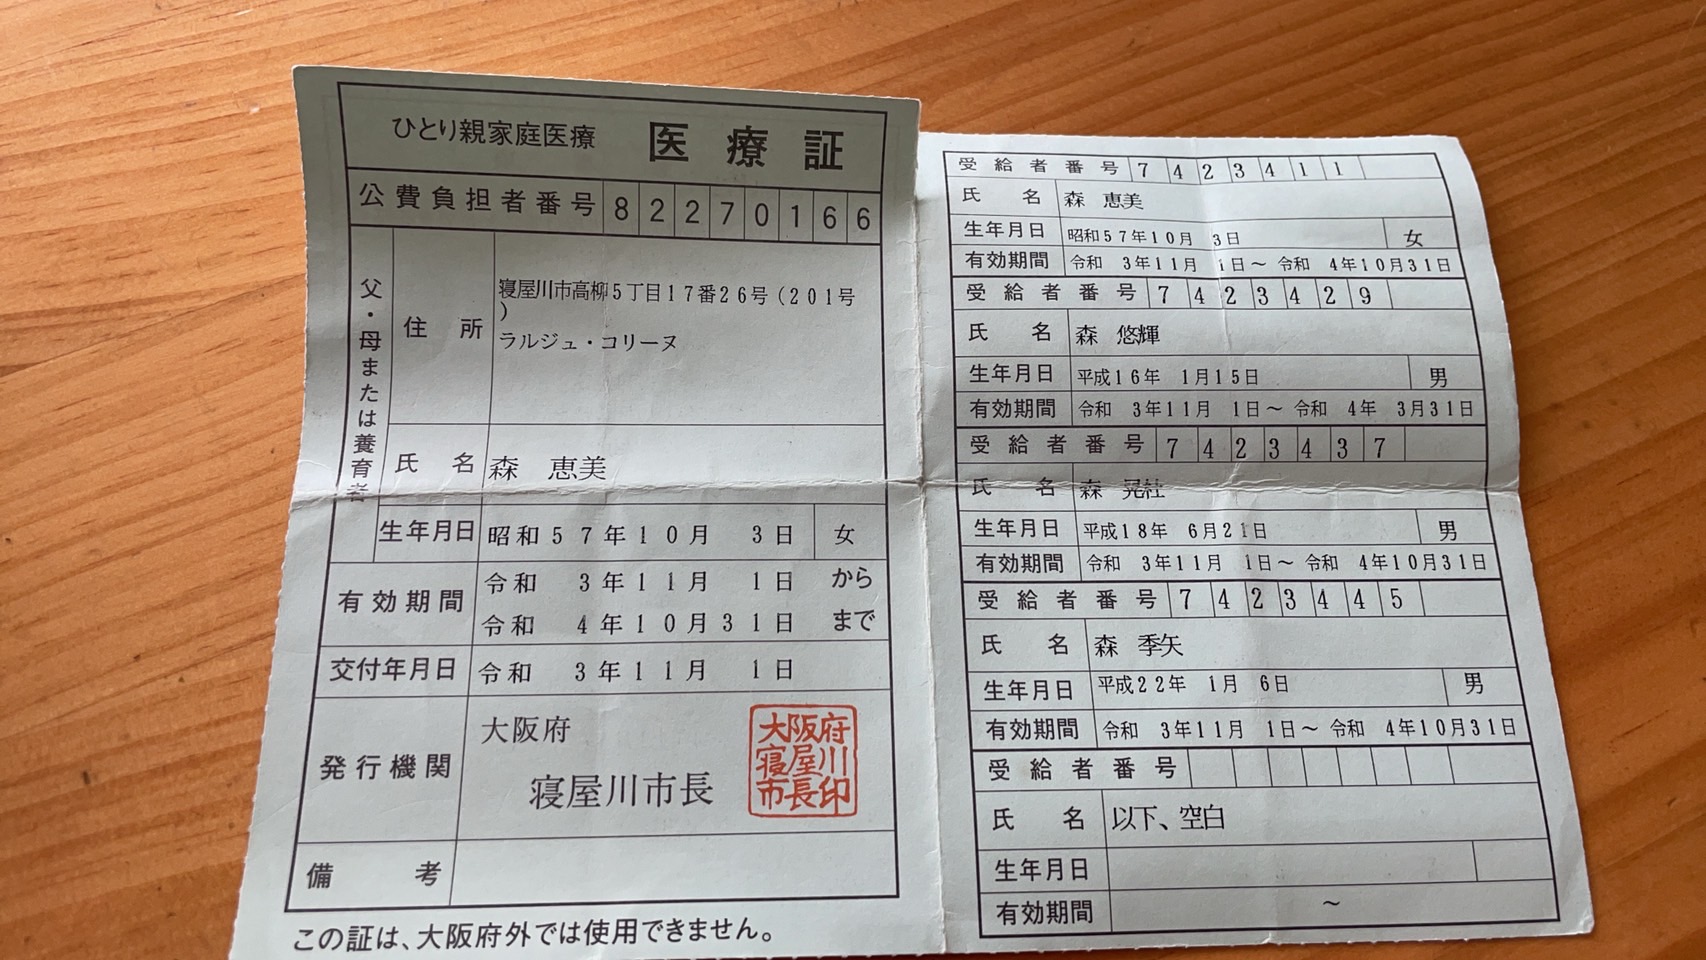 ひとり親家庭医療 医療証
公費負担者番号 82270166
父・母または養育者
住所
寝屋川市高柳5丁目17番26号(201号
)
ラルジュ・コリーヌ
氏名 森 恵美
生年月日 昭和57年10月 3日 女
有効期間
令和 3年11月 1日 から
令和 4年10月31日 まで
交付年月日 令和 3年11月 1日
発行機関
大阪府
寝屋川市長
大阪府
寝屋川
市長印
備考
この証は、大阪府外では使用できません。
受給者番号 7423411
氏名 森 恵美
生年月日 昭和57年10月 3日 女
有効期間 令和 3年11月 1日～ 令和 4年10月31日
受給者番号 7423429
氏名 森 悠輝
生年月日 平成16年 1月15日 男
有効期間 令和 3年11月 1日～ 令和 4年 3月31日
受給者番号 7423437
氏名 森
生年月日 平成18年 6月21日 男
有効期間 令和 3年11月 1日～ 令和 4年10月31日
受給者番号 7423445
氏名 森 季矢
生年月日 平成22年 1月 6日 男
有効期間 令和 3年11月 1日～ 令和 4年10月31日
受給者番号
氏名 以下、空白
生年月日
有効期間 ～